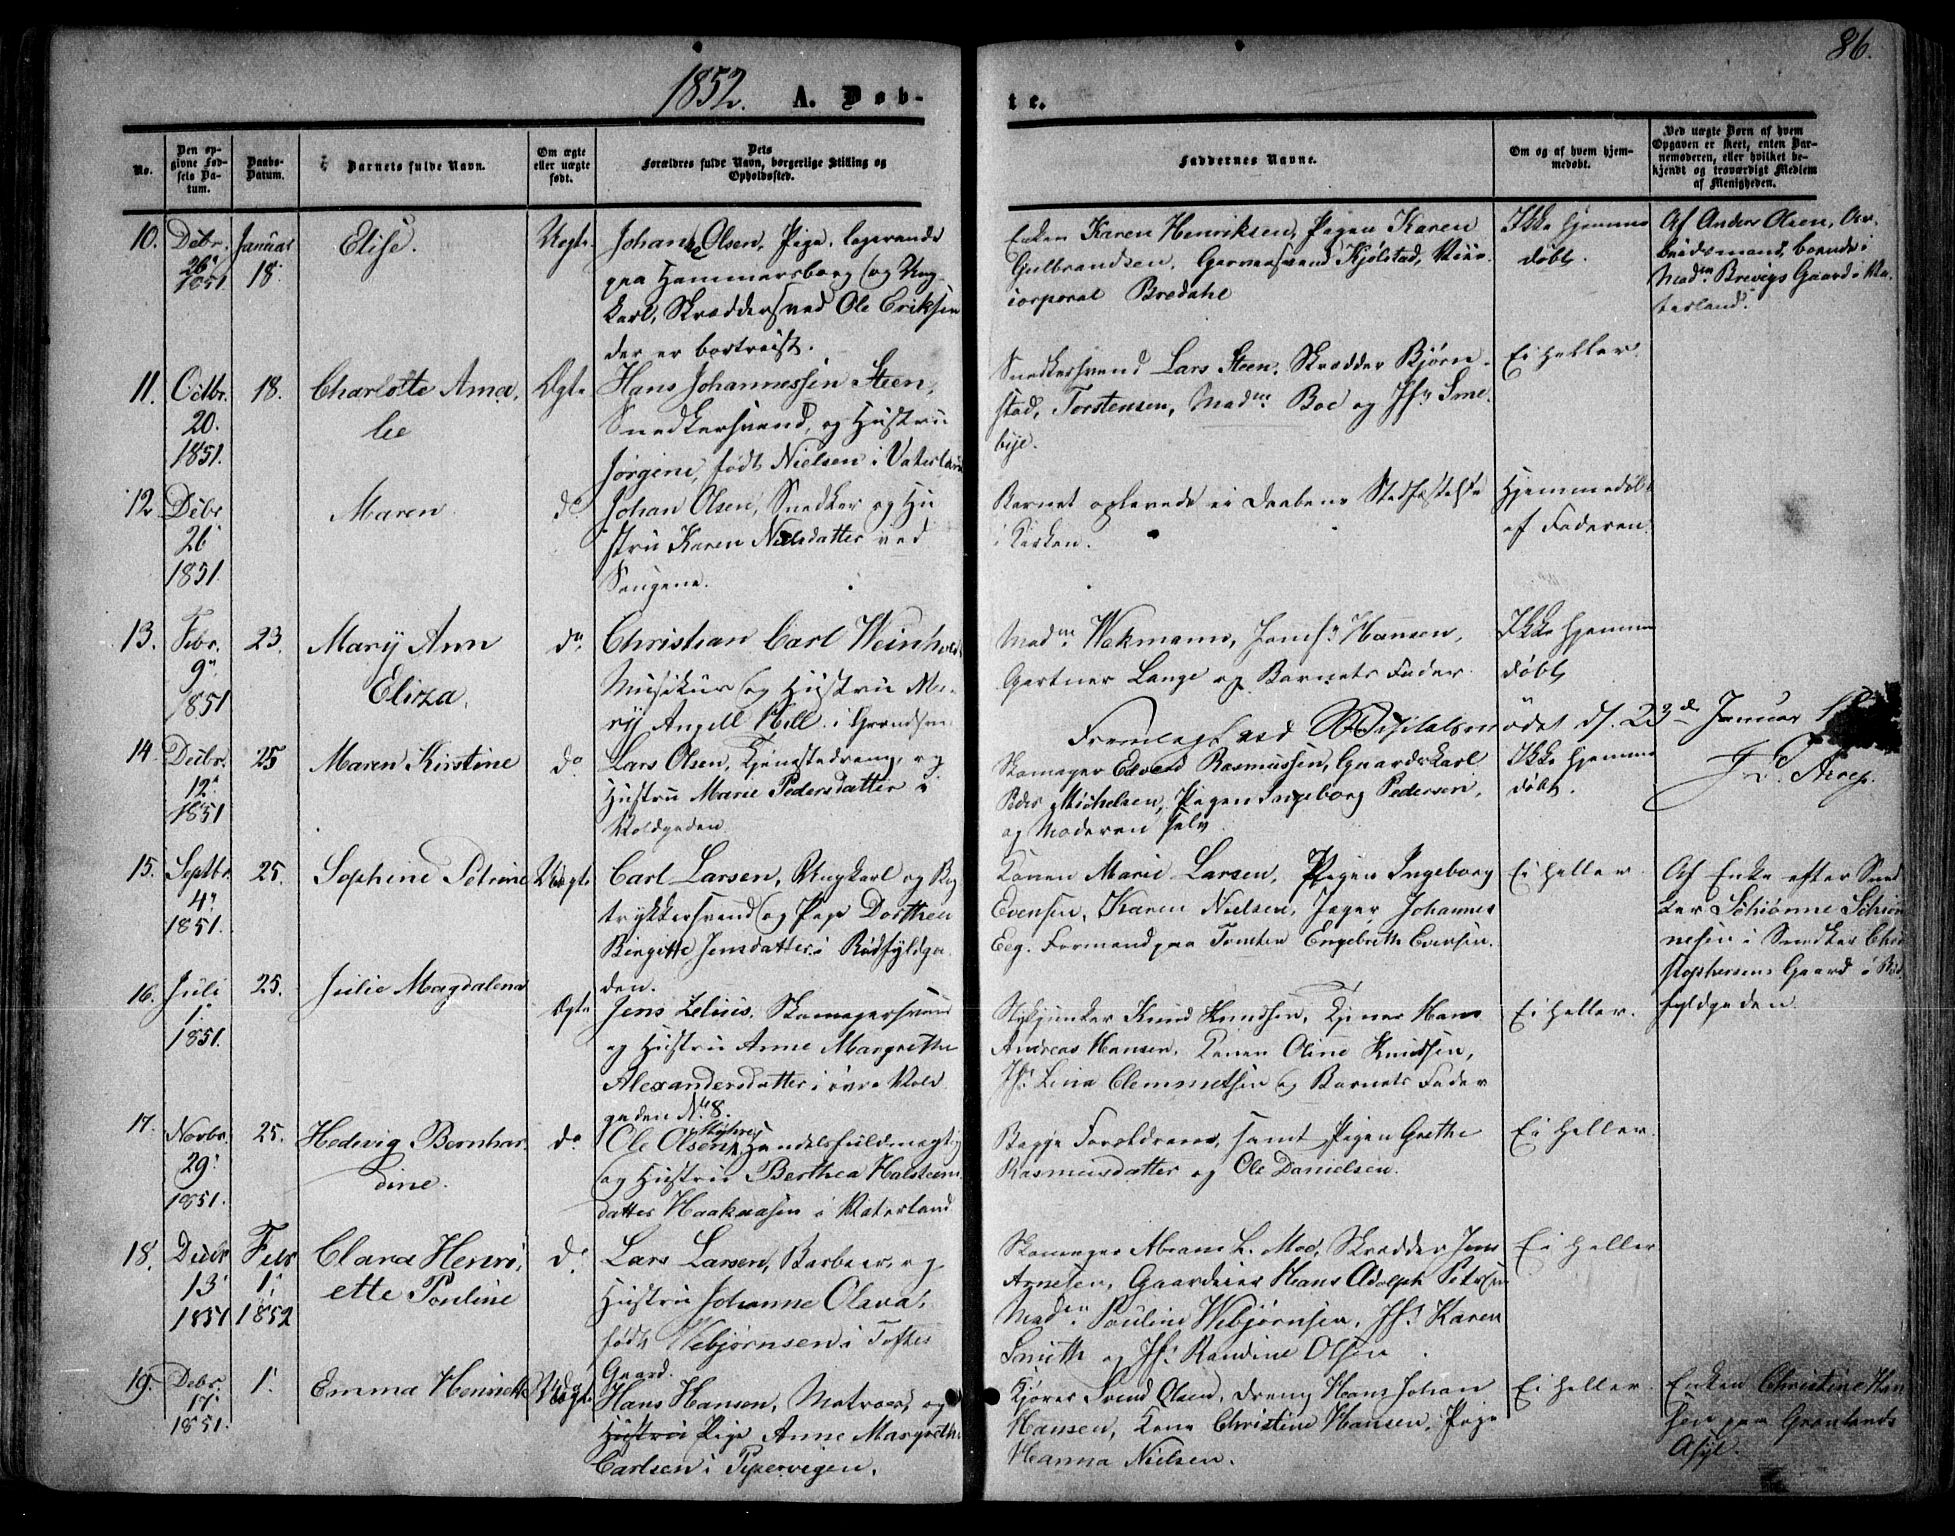 86.
1852. A. Døb-
te.
No.
Den op-
givne Fød-
sels Da-
tum.
Daabs-
Datum.
Barnets fulde Navn.
Om ægte
eller uægte
født.
Dets
Forældres fulde Navn, borgerlige Stilling og
Opholdssted.
Faddernes Navne.
Om og af hvem hjem-
medøbt.
Ved uægte Børn af hvem
Opgaven er skeet, enten Bar-
nemoderen, eller hvilket be-
kjendt og troværdigt Medlem
af Menigheden.
10.
Decbr.
26
1851
Januar
18
Elise.
Uegte
Johanne Olsen, Pige, logerende
paa Hammersborg og Ung-
karl, Skræddersvend Ole Eriksen
der er bortreist.
Enken Karen Henriksen, Pigen Karen
Gulbrandsen, Garversvend Kjølstad,
corporal Bredahl
Ikke hjemme
døbt.
Af Anders Olsen, Ar-
beidsmand, boende i
Madm. Brevigs Gaard i Va-
terland.
11.
Octbr.
20.
1851.
18.
Charlotte Ama-
lie
Ægte
Hans Johannessen Steen,
Snedkersvend, og Hustru
Jørgine, født Nielsen i Vaterland
Snedkersvend Lars Steen, Skrædder Bjørn-
stad, Torstensen, Madm. Boe og Jfr. Sme-
bye.
Ei heller.
12
Decbr
26
1851.
Maren
do
Johan Olsen, Snedker og Hu
stru Karen Nielsdatter ved
Saugene.
Barnet oplevede ei Daabens Stadfæstelse
i Kirken.
Hjemmedøbt
af Faderen.
13.
Febr.
9
1851
23.
Mary Ann
Elirza.
do
Christian Carl Weinhold
Musikus og Hustru Ma-
ry Angell Hill i Grændsen
Madm. Wekmann, Jomfr. Hansen,
Gartner Lange og Barnets Fader.
Ikke hjemme
døbt
Fremlagt ved
ødet d. 23de Januar
14.
Decbr.
12
1851
25
Maren Kirstine
do
Lars Olsen, Tjenestedreng, og
Hustru Marie Pedersdatter i
Voldgaden
Skomager Edvard Rasmussen, Gaardskarl
Peder Michelsen, Pigen Ingeborg Pedersen,
og Moderen selv
Ikke hjemme
døbt.
15.
Septbr.
4
1851.
25.
Sophine Petrine
Uægte
Carl Larsen, Ungkarl og Bog
trykkersvend og Pige Dorthea
Birgitte Jensdatter i Rødfyldga-
den.
Konen Marie Larsen, Pigen Ingeborg
Evensen, Karen Nielsen, Jæger Johannes
Eeg. Formand paa Tomten Engebreth Evensen.
Ei heller
Af Enke efter Sned
ker Schiønne Schiøn
nesen i Snedker Chri
stophersens Gaard i Rød
fyldgaden
16.
Juli
1
1851.
25.
Julie Magdalena
Ægte
Jens Zelius, Skomagersvend
og Hustru Anne Margrethe
Alexandersdatter i øvre Vold
gaden No 8.
Stykjunker Knud Knudsen, Tjener Hans
Andreas Hansen, Konen Oline Knudsen,
Jfr. Lina Clemmetsen og Barnets Fader
Ei heller.
17.
Novbr.
29
1851.
25.
Hedevig Bernhar-
dine.
do
Ole Olsen Myhre, Handelsfuldmægtig
og Hustru Berthea Halsteen
datter Haakaasen i Vaterland
Begge Forældrene, samt Pigen Grethe
Rasmusdatter og Ole Danielsen.
Ei heller.
18.
Decbr
13
1851
Febr
1
1852
Clara Henri-
ette Pouline
do
Lars Larsen, Barbeer, og
Hustru Johanne Olava,
født Webjørnsen i Toftes
Gaard.
Skomager Abram L. Moe, Skrædder Jens
Arnesen, Gaardeier Hans Adolph Petersen
Madm. Pauline Webjørnsen, Jfr. Karen
Smith og Jfr. Randine Olsen
Ei heller
19.
Decbr.
17
1851.
1.
Emma Henriette
Uægte
Hans Hansen, Matros, og
Hustru Pige Anne Margrethe
Carlsen i Pipervigen.
Kjører Svend Olsen, Dreng Hans Johan
Hansen, Kone Christine Hansen, Pige
Hanna Nielsen.
Ei heller.
Enken Christine Han
sen paa Grønlands
Asyl.